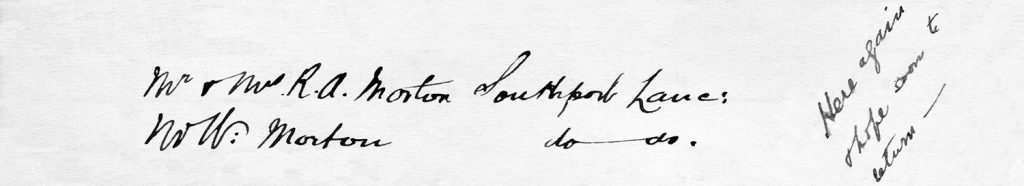 Mr & Mrs. R. A. Morton Southport Lanc:
Morton do — do.
Here again
& hope soon to
return —